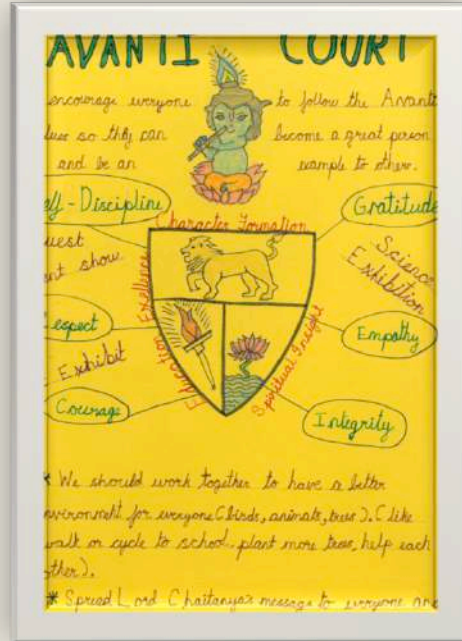 AVANTI COURT
encourage everyone to follow the Avanti
so they can become a great person
and be an example to others.
Self-Discipline
Gratitude
Character Formation
uest
Science
Exhibition
nt show
Education Excellence
espect
Empathy
Spiritual Insight
Exhibit
Courage
Integrity
* We should work together to have a better
nvironment for everyone (birds, animals, trees). (like
walk or cycle to school, plant more trees, help each
ther).
* Spread Lord Chaitanya's message to everyone and